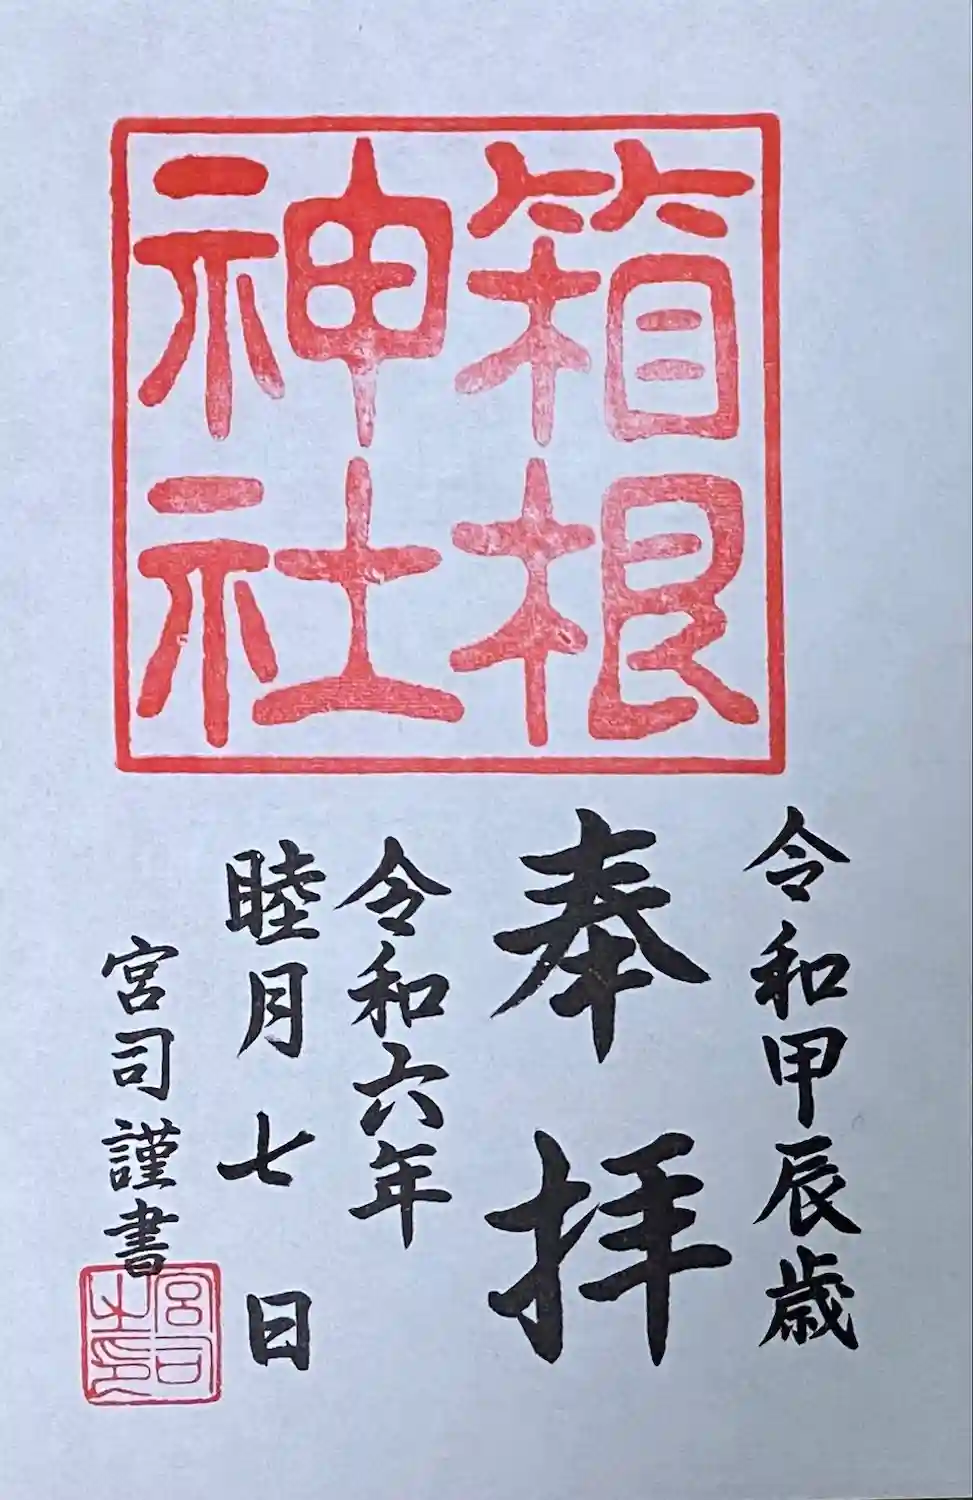 箱根
神社
令和甲辰歳
奉拝
令和六年
睦月七日
宮司謹書
宮司
之印